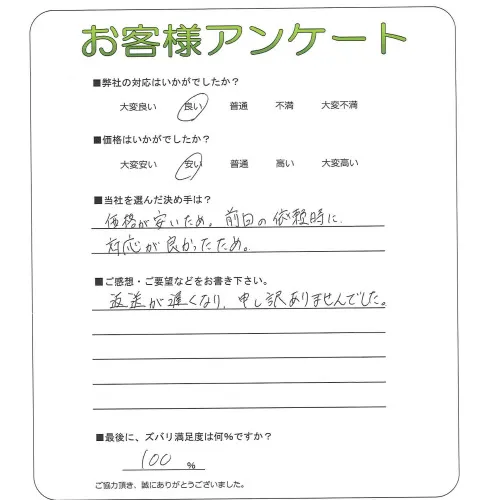 お客様アンケート
■弊社の対応はいかがでしたか？
大変良い 良い 普通 不満 大変不満
■価格はいかがでしたか？
大変安い 安い 普通 高い 大変高い
■当社を選んだ決め手は？
価格が安いため。前回の依頼時に
対応が良かったため。
■ご感想・ご要望などをお書き下さい。
返送が遅くなり、申し訳ありませんでした。
■最後に、ズバリ満足度は何％ですか？
100 ％
ご協力頂き、誠にありがとうございました。